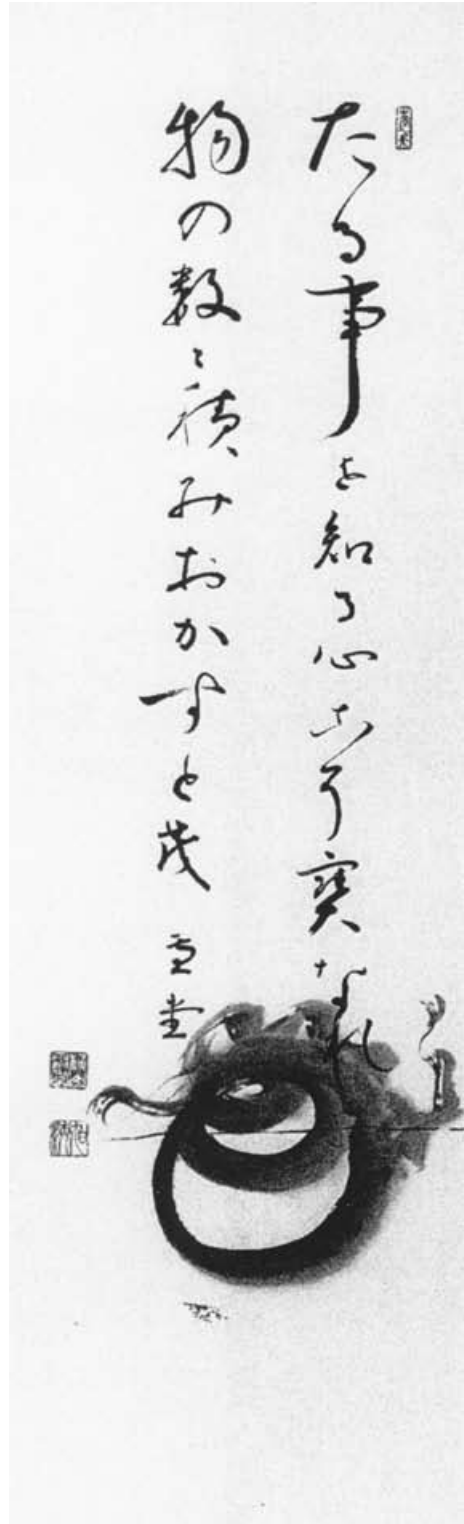 たる事を知る心こそ寶なれ
物の数々積みおかすとも
雪堂